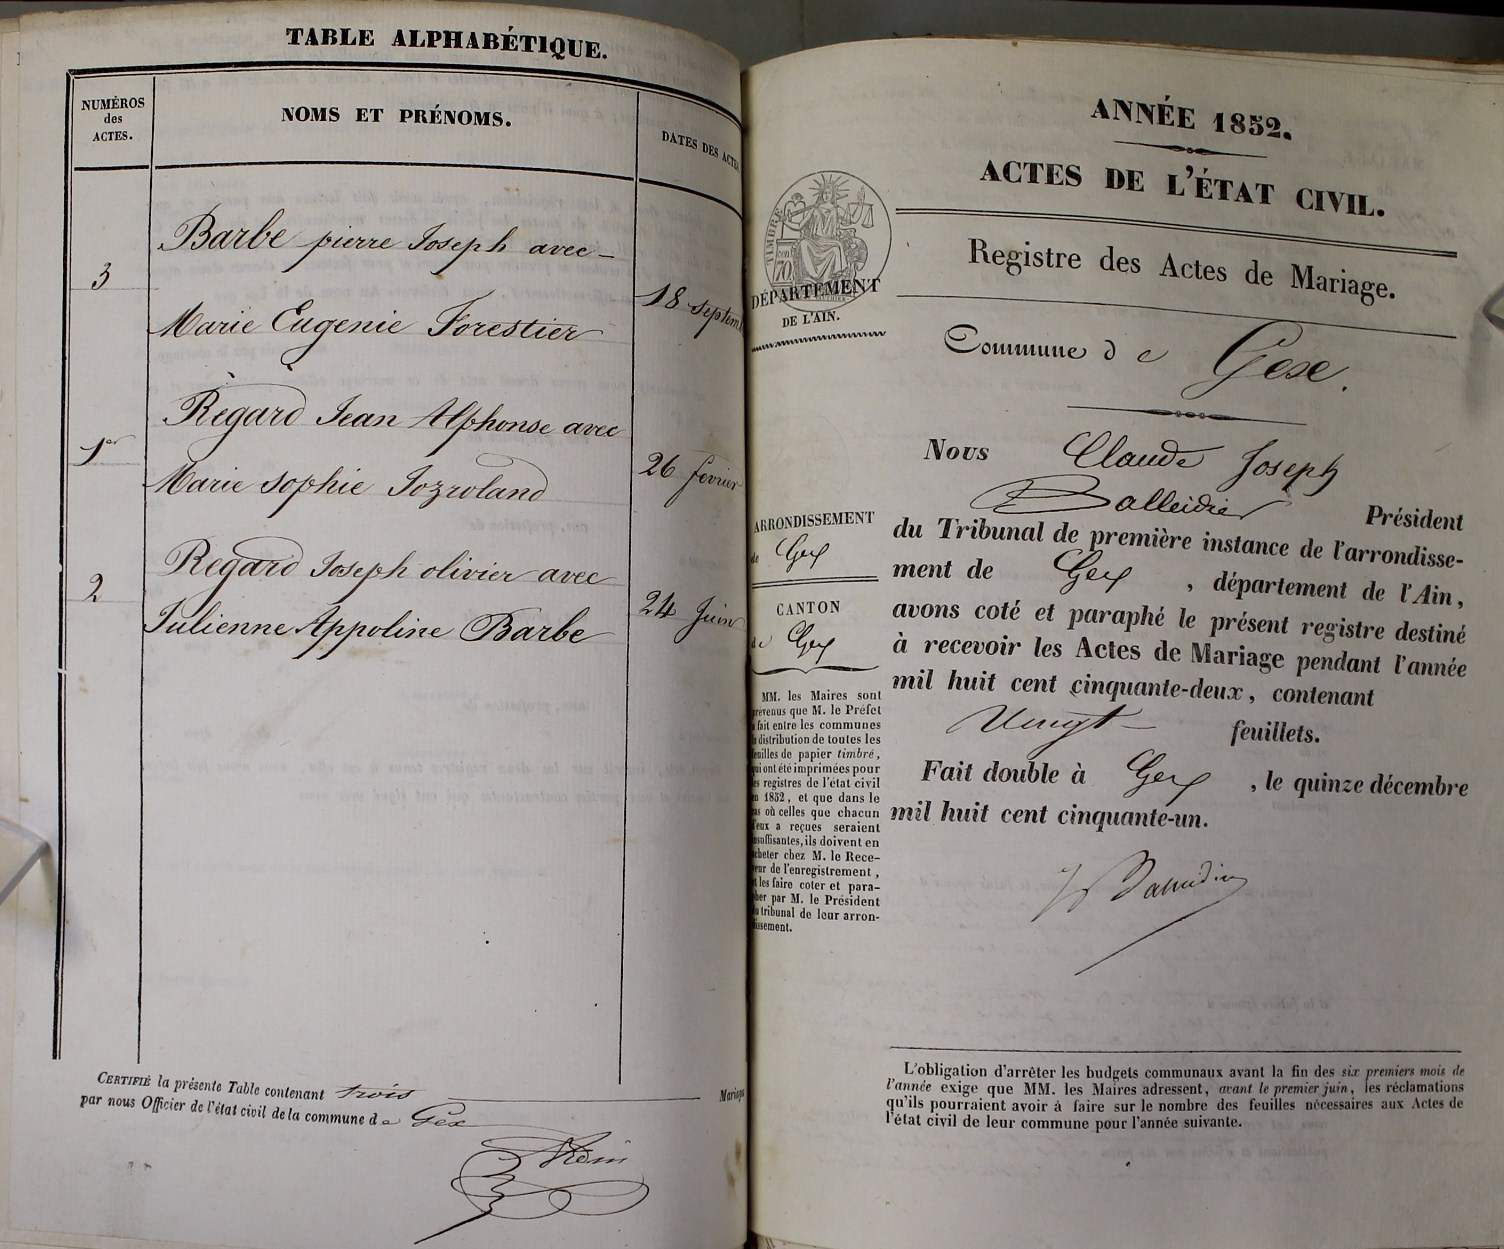 TABLE ALPHABÉTIQUE.
NUMÉROS
des
ACTES.
NOMS ET PRÉNOMS.
DATES DES ACTES
Barbe pierre Joseph avec
3
18 septem
Marie Eugenie Forestier
Regard Jean Alphonse avec
1er
26 fevrier
Marie Sophie Jozroland
Regard Joseph olivier avec
2
24 Juin
Julienne Appoline Barbe
CERTIFIÉ la présente Table contenant trois Mariages
par nous Officier de l'état civil de la commune de Gex
ANNÉE 1852.
ACTES DE L'ÉTAT CIVIL.
TIMBRE
70
DÉPARTEMENT
DE L'AIN.
Registre des Actes de Mariage.
Commune de Gex.
ARRONDISSEMENT
de Gex
CANTON
de Gex
MM. les Maires sont
prévenus que M. le Préfet
a fait entre les communes
la distribution de toutes les
feuilles de papier timbré,
qui ont été imprimées pour
les registres de l'état civil
en 1852, et que dans le
cas où celles que chacun
d'eux a reçues seraient
insuffisantes, ils doivent en
acheter chez M. le Rece-
veur de l'enregistrement,
et les faire coter et para-
pher par M. le Président
du tribunal de leur arron-
dissement.
Nous Claude Joseph
Balleidier Président
du Tribunal de première instance de l'arrondisse-
ment de Gex, département de l'Ain,
avons coté et paraphé le présent registre destiné
à recevoir les Actes de Mariage pendant l'année
mil huit cent cinquante-deux, contenant
Vingt feuillets.
Fait double à Gex, le quinze décembre
mil huit cent cinquante-un.
L'obligation d'arrêter les budgets communaux avant la fin des six premiers mois de
l'année exige que MM. les Maires adressent, avant le premier juin, les réclamations
qu'ils pourraient avoir à faire sur le nombre des feuilles nécessaires aux Actes de
l'état civil de leur commune pour l'année suivante.